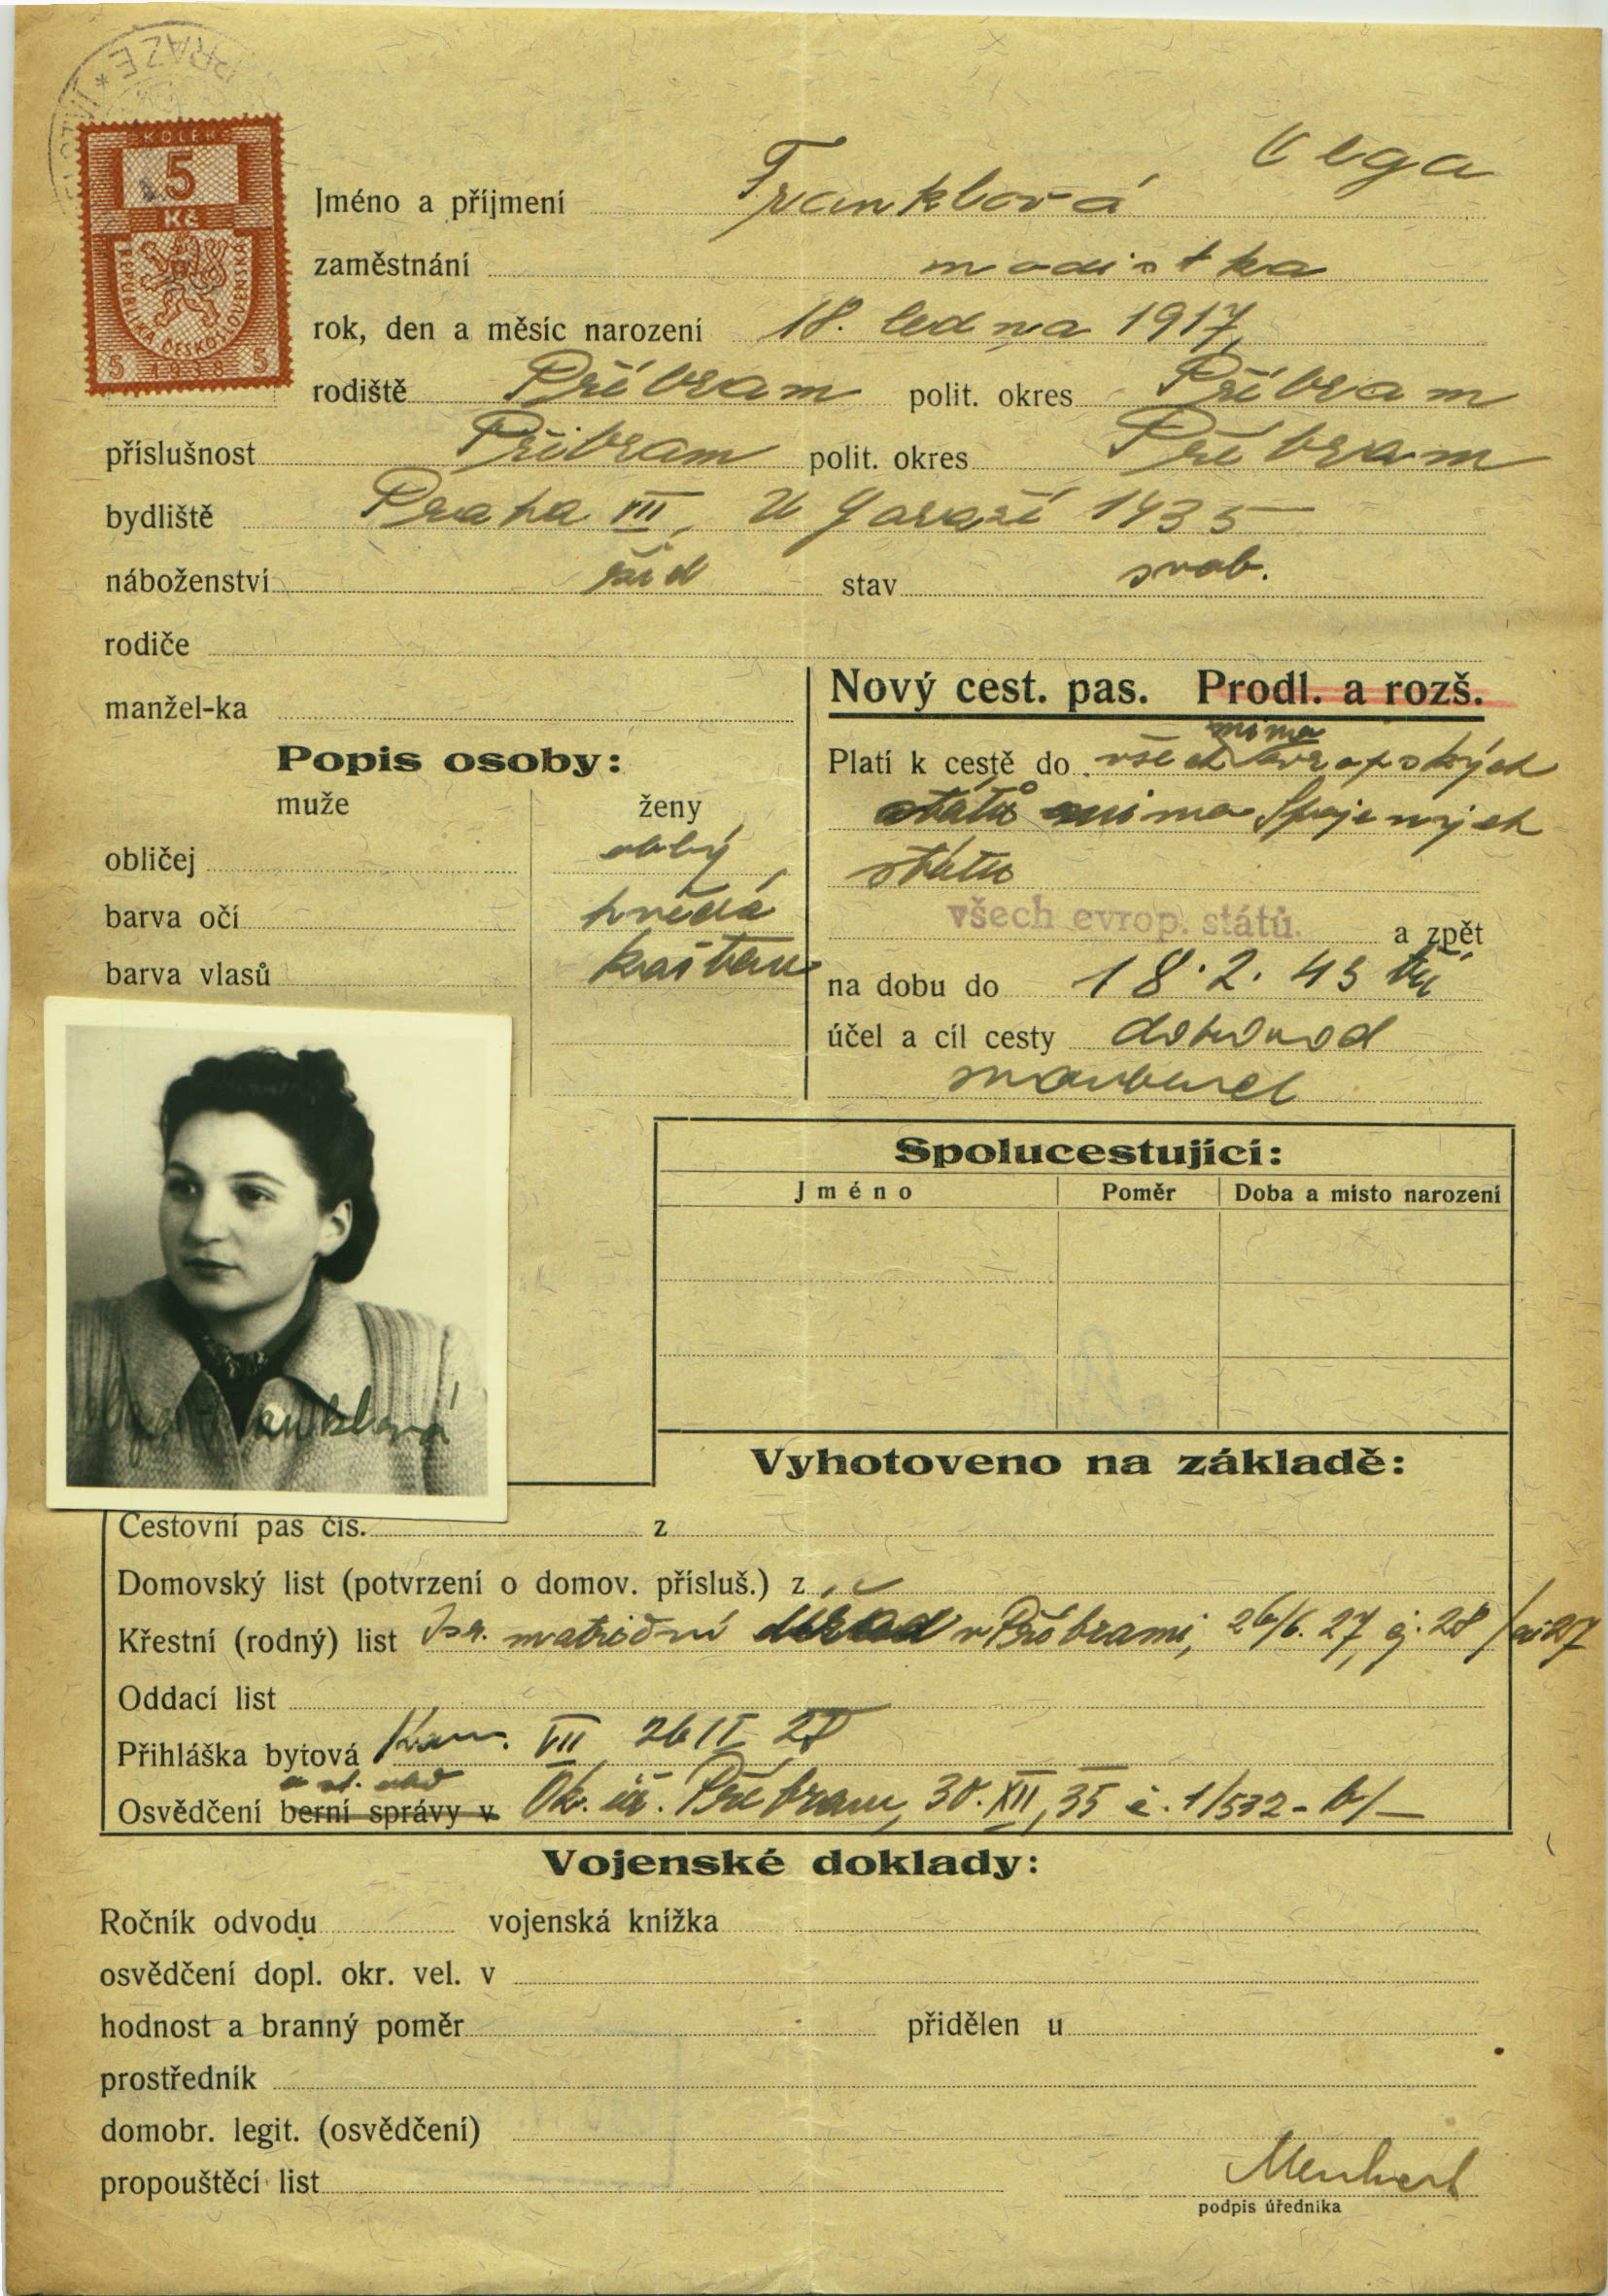 PRAZE *
KOLEK
5
Kč
REPUBLIKA ČESKOSLOVENSKÁ
5 1938 5
Olga
Jméno a příjmení Franklová
zaměstnání modistka
rok, den a měsíc narození 18. ledna 1917,
rodiště Příbram polit. okres Příbram
příslušnost Příbram polit. okres Příbram
bydliště Praha VII, U garáží 1435
náboženství žid stav svob.
rodiče
manžel-ka
Nový cest. pas. Prodl. a rozš.
Popis osoby:
muže ženy
obličej oblý
barva očí hnědá
barva vlasů kaštan
mimo
Platí k cestě do všech evropských
států mimo Spojených
států
všech evrop. států. a zpět
na dobu do 18.2.43
účel a cíl cesty
Spolucestující:
Jméno Poměr Doba a místo narození
Franklová
Vyhotoveno na základě:
Cestovní pas čís. z
Domovský list (potvrzení o domov. přísluš.) z
Křestní (rodný) list Isr. matriční úřad v Příbrami, 26/6. 27, č. 28
Oddací list
Přihláška bytová Kom. VII 26 II
Osvědčení berní správy v Ok. úř. Příbram, 30. XII, 35 č. 1/532 - b/-
Vojenské doklady:
Ročník odvodu vojenská knížka
osvědčení dopl. okr. vel. v
hodnost a branný poměr přidělen u
prostředník
domobr. legit. (osvědčení)
propouštěcí list
podpis úředníka